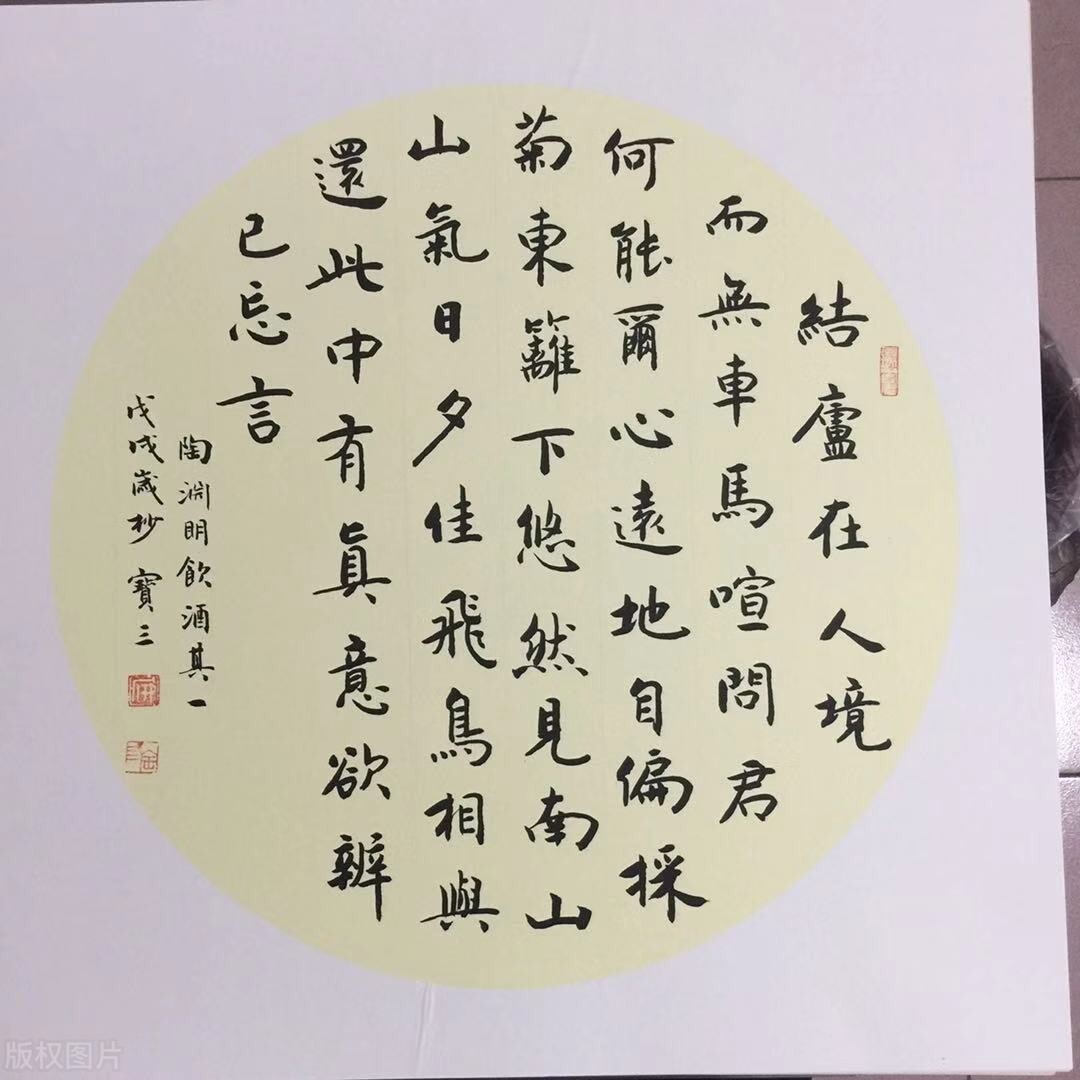 結廬在人境
而無車馬喧問君
何能爾心遠地自偏採
菊東籬下悠然見南山
山氣日夕佳飛鳥相與
還此中有眞意欲辨
已忘言
陶淵明飲酒其一
戊戌歲杪 寶三
版权图片